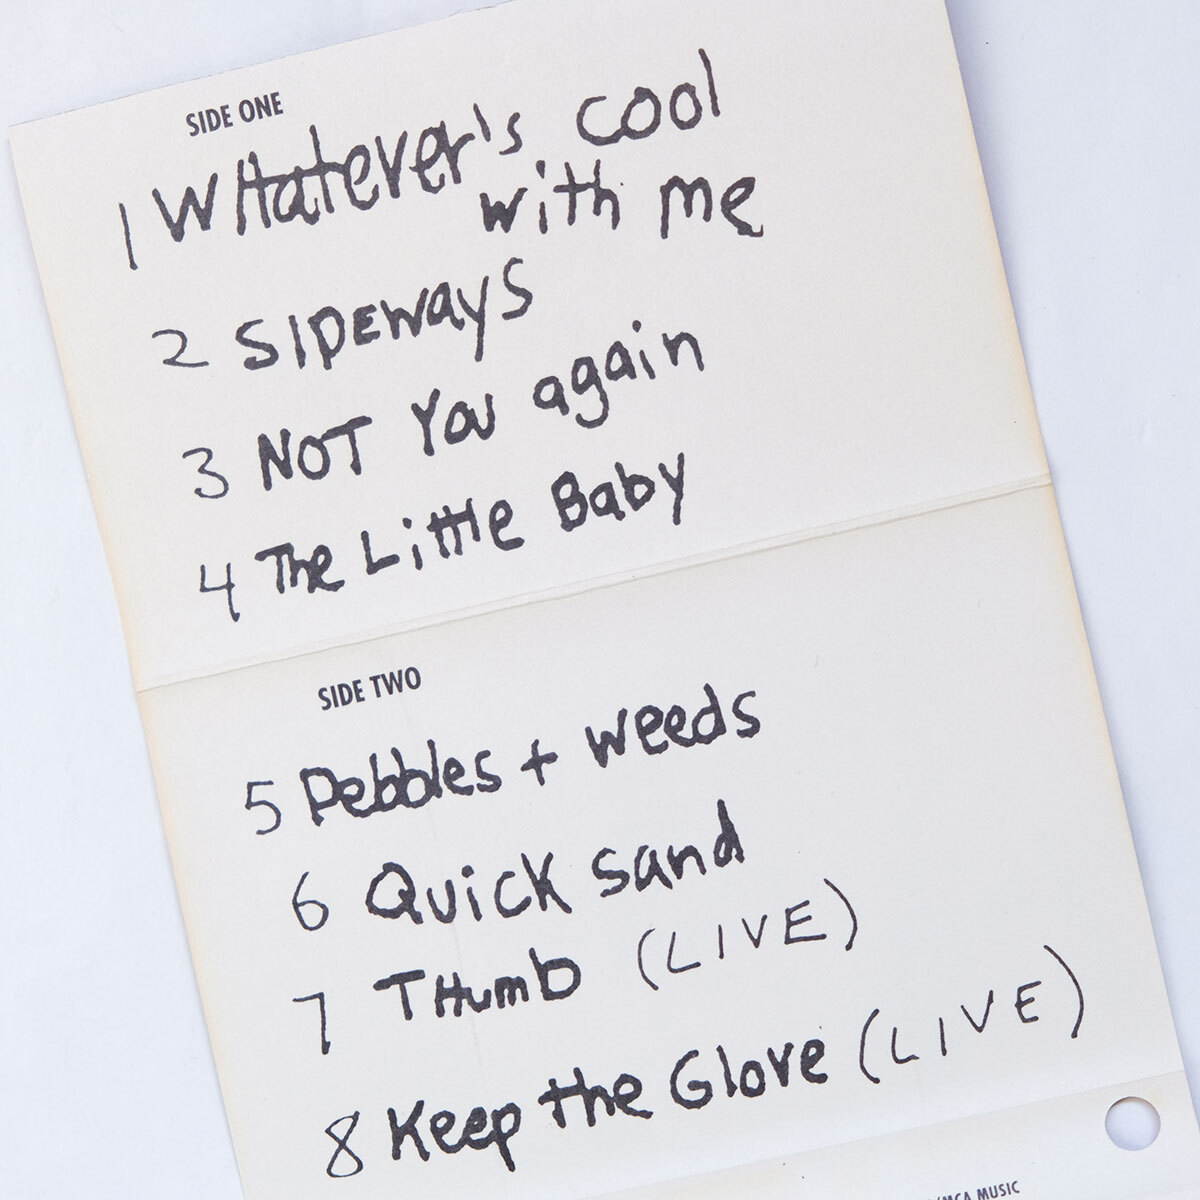 SIDE ONE
1 WHatever's cool
with me
2 SIDEWayS
3 NOT You again
4 The Little Baby
SIDE TWO
5 Pebbles + weeds
6 QuicK sand
7 THumb (LIVE)
8 Keep the Glove (LIVE)
/MCA MUSIC